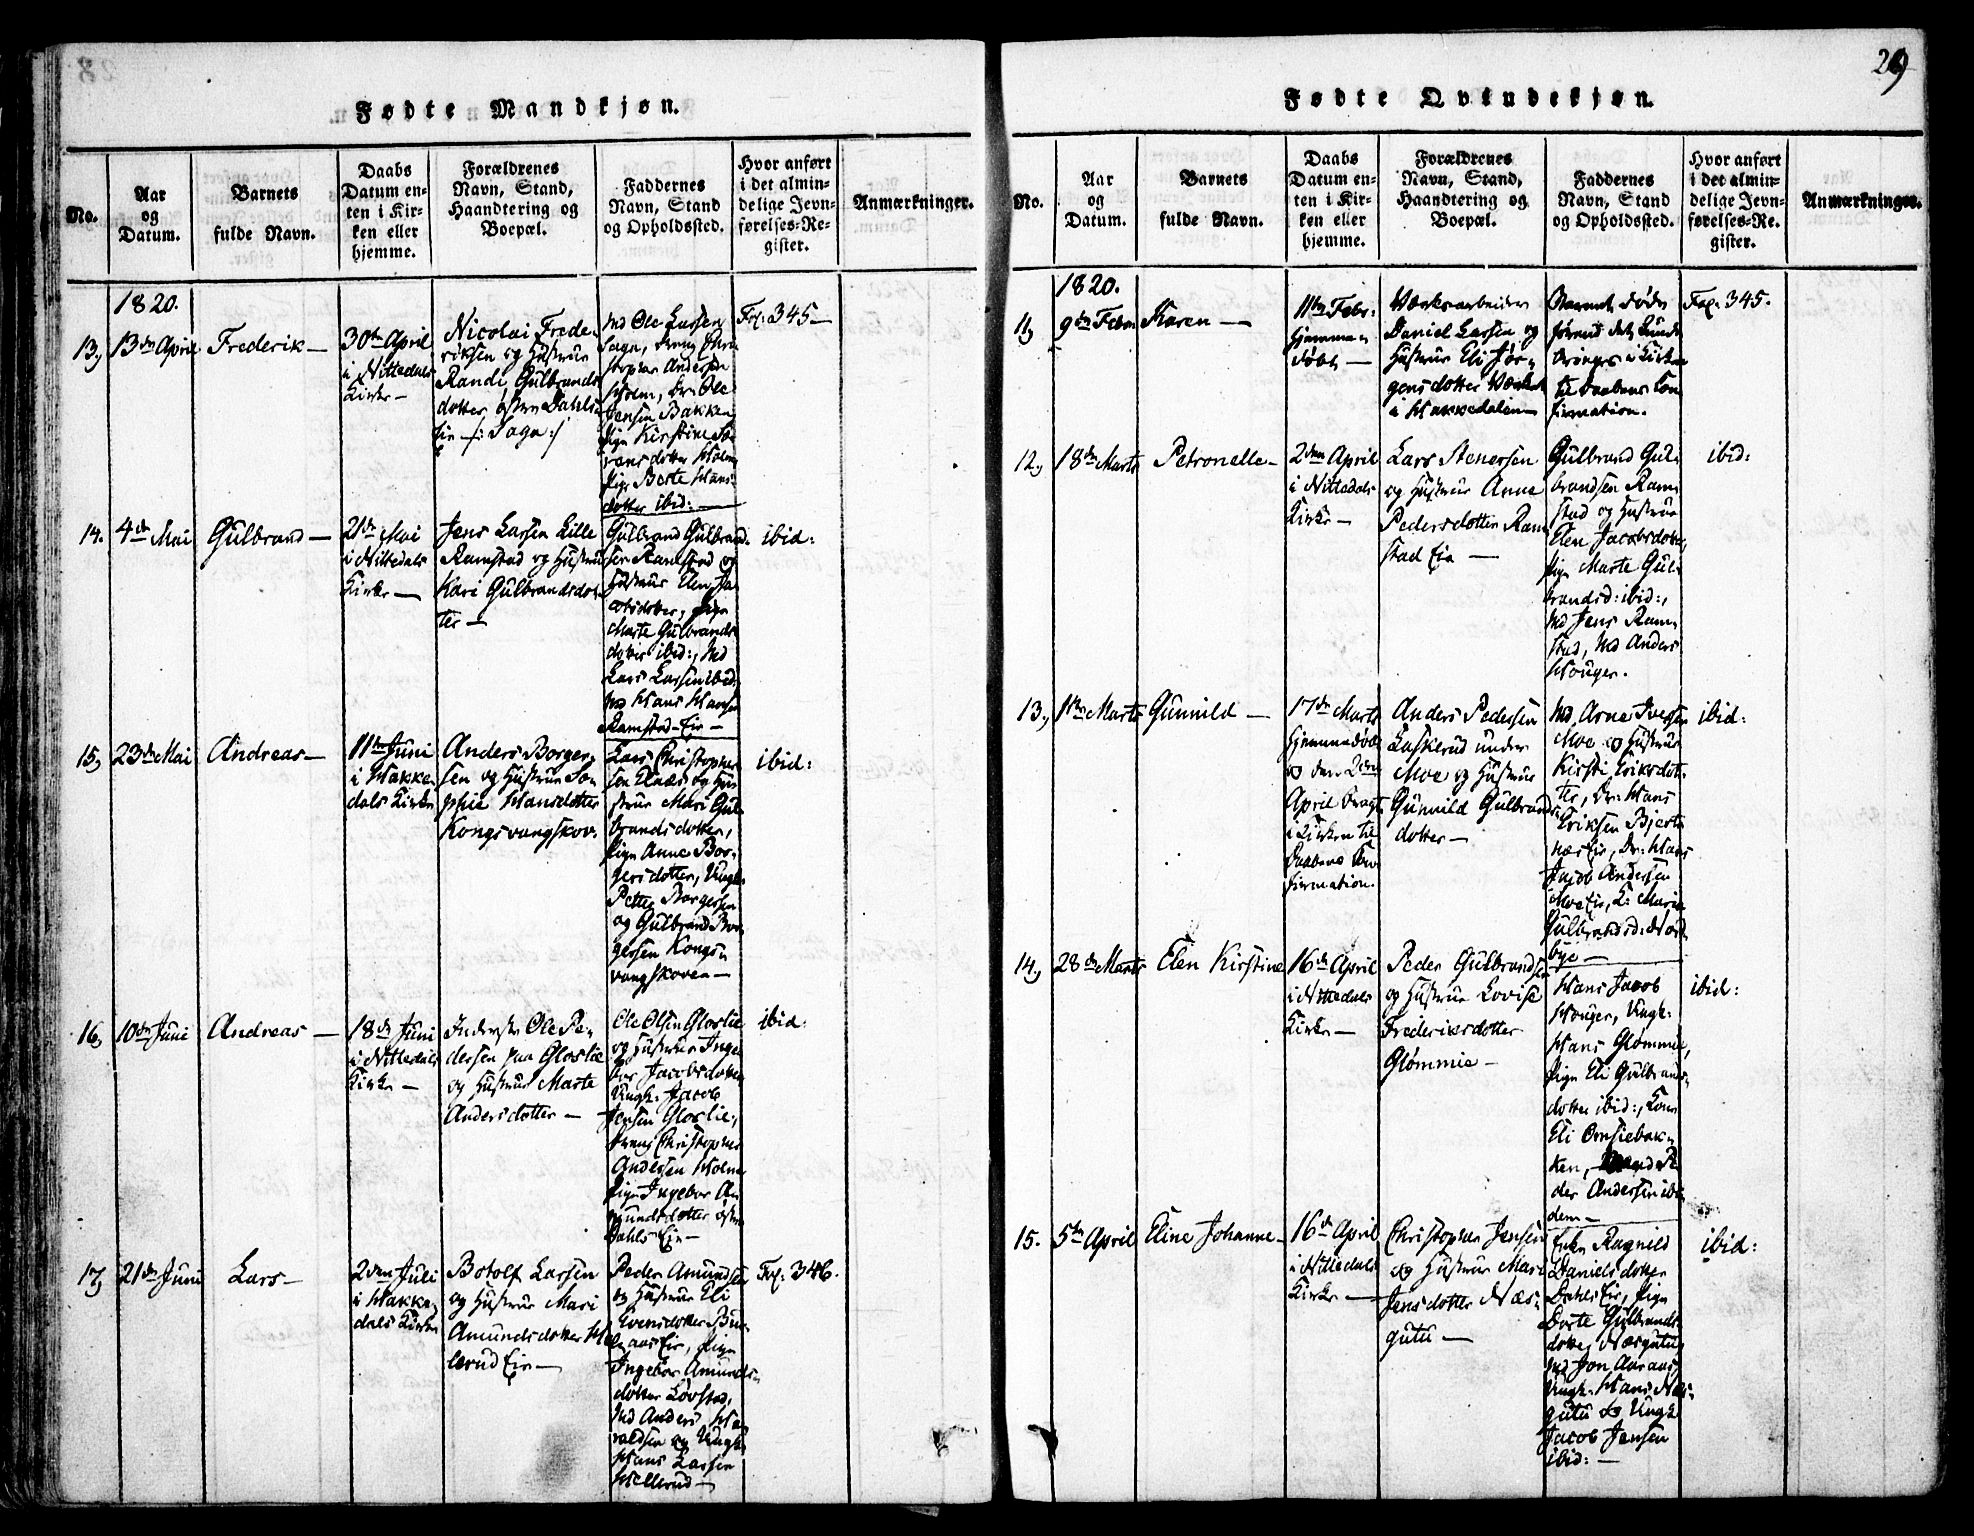 Fødte Mandkjøn.
No.
Aar
og
Datum.
Barnets
fulde Navn.
Daabs
Datum en-
ten i Kir-
ken eller
hjemme.
Forældrenes
Navn, Stand,
Haandtering og
Boepæl.
Faddernes
Navn, Stand
og Opholdssted.
Hvor anført
i det almin-
delige Jevn-
førelses-Re-
gister.
Anmærkninger.
1820.
13,
13de April
Frederik —
30te April
i Nittedals
Kirke —
Nicolai Frede-
riksen og Hustrue
Randi Gulbrands
dotter, østre Dahls
Eie —/: Saga :/
Md Ole Larsen
Saga, dreng Chri
stopher Andersen
Holm, Dr: Ole
Jensen Bakken
Pige Kirstine Sø-
rensdotter Holm
Pige Berte Hans-
dotter ibid: —
Fol: 345 —
14.
4de Mai
Gulbrand —
21de Mai
i Nittedals
Kirke —
Jens Larsen Lille
Ramstad og Hustrue
Kari Gulbrandsdot-
ter —
Gulbrand Gulbrand-
sen Ramstad og
Hustrue Elen Ja-
cobsdotter, Pige
Marte Gulbrands
dotter ibid:, Md
Lars Larsen ibid:
Md Hans Hansen
Ramstad-Eie —
ibid:
15,
23de Mai
Andreas —
11te Juni
i Hakke-
dals Kirke
Anders Borger-
sen og Hustrue So-
phie Hansdotter
Kongsvangskov.
Lars Christopher
sen Elnæs og Hu-
strue Mari Gul-
brandsdotter,
Pige Anne Bor-
gersdotter, Ungk:
Petter Borgersen
og Gulbrand Bor-
gersen Kongs-
vangskoven —
ibid:
16,
10de Juni
Andreas —
18de Juni
i Nittedals
Kirke —
Inderster Ole Pe-
dersen paa Gloslie
og Hustrue Marte
Andersdotter —
Ole Olsen Gloslie
og Hustrue Inge
bor Jacobsdotter
Ungk: Jacob
Jensen Gloslie,
dreng Christopher
Andersen Holm
Pige Ingebor A
mundsdotter østre
Dahls-Eie —
ibid:
17,
21de Juni
Lars —
2den Juli
i Hakke-
dals Kirke
Botolf Larsen
og Hustrue Mari
Amundsdotter Hel-
lerud Eie —
Peder Amundsen
og Hustrue Eli
Evensdotter
Eie, Pige
Ingebor Amunds-
dotter Løvstad,
Md Anders Ha-
raldsen og Ungk:
Hans Larsen
Hellerud —
Fol: 346.
29
Fødte Qvindekjøn.
No.
Aar
og
Datum.
Barnets
fulde Navn.
Daabs
Datum en-
ten i Kir-
ken eller
hjemme.
Forældrenes
Navn, Stand,
Haandtering og
Boepæl.
Faddernes
Navn, Stand
og Opholdssted.
Hvor anført
i det almin-
delige Jevn-
førelses-Re-
gister.
Anmærkninger.
1820.
11,
9de Febr
Karen —
11te Febr:
hjemme-
døbt —
Værksarbeider
Daniel Larsen og
Hustrue Eli Jør-
gensdotter Værket
i Hakkedalen —
Barnet døde
førend det kunde
bringes i Kirken
til Daabens Con
firmation.
Fol: 345.
12,
18de Marts
Petronelle —
2den April
i Nittedals
Kirke —
Lars Stenersen
og Hustrue Anne
Pedersdotter Ram
stad Eie —
Gulbrand Gul-
brandsen Ram-
stad og Hustrue
Elen Jacobsdotter,
Pige Marte Gul-
brandsd: ibid:,
Md Jens Ram-
stad, Md Anders
Houger.
ibid:
13,
11te Marts
Gunnild —
17de Marts
hjemmedøbt
og den 2den
April bragt
i Kirken til
Daabens Con-
firmation.
Anders Pedersen
Laskerud under
Moe og Hustrue
Gunnild Gulbrands
dotter —
Md Arne Iversen
Moe og Hustrue
Kirsti Eriksdot-
ter, Dr: Hans
Eriksen Bjerte
næs Eie, Dr: Hans
Jacob Andersen
Moe Eie, K: Marie
Gulbrandsd: Nord
bye —
ibid:
14,
28de Marts
Elen Kirstine
16de April
i Nittedals
Kirke —
Peder Gulbrandsen
og Hustrue Lovise
Frederiksdotter
Glommie —
Hans Jacob
Houger, Ungk:
Hans Glommie,
Pige Eli Gulbrands-
dotter ibid:, Kone
Eli Ornsiebak-
ken, Pe
der Andersen ibi-
dem —
ibid:
15.
5te April
Eline Johanne —
16de April
i Nittedals
Kirke —
Christopher Jensen
og Hustrue Mari
Jensdotter Næs-
gutu —
Enke Ragnild
Danielsdotter
Dahls Eie, Pige
Dorte Gulbrands-
dotter Næsgutu,
Md Jon Aaraas,
Ungk: Hans Næs-
gutu og Ungk:
Jacob Jensen
ibid: —
ibid: